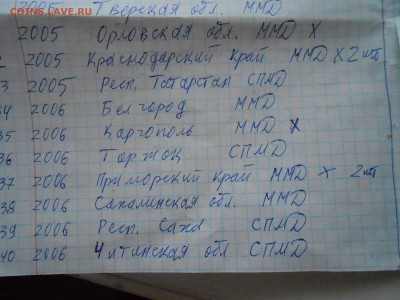 COINS.LAVE.RU
2005 Тверская обл. ММД
2005 Орловская обл. ММД X
2 2005 Краснодарский край ММД X 2 шт
3 2005 Респ. Татарстан СПМД
34 2006 Белгород ММД
35 2006 Каргополь ММД X
36 2006 Торжок СПМД
37 2006 Приморский край ММД X 2 шт
38 2006 Сахалинская обл. ММД
39 2006 Респ. Саха СПМД
40 2006 Читинская обл СПМД